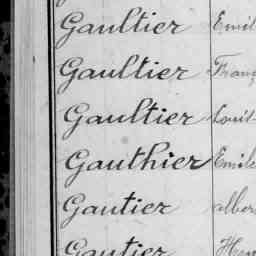 Gaultier Emil
Gaultier Franç
Gaultier Louis
Gauthier Emile
Gautier alber
Gautier Hen